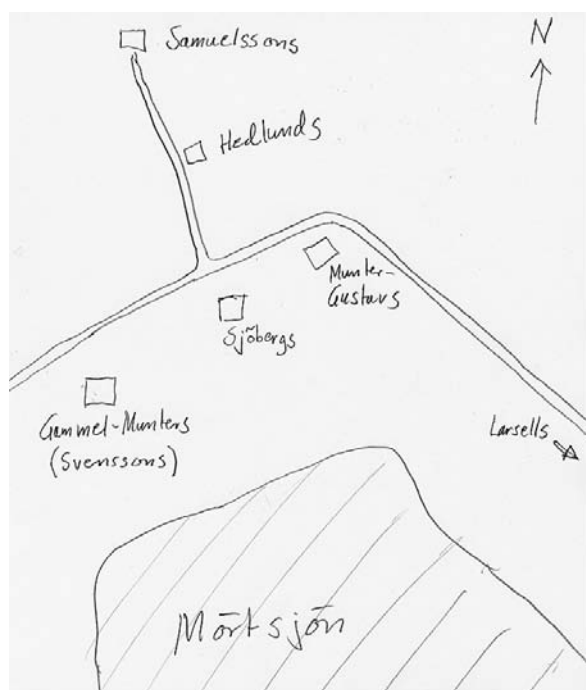 Samuelssons
N
Hedlunds
Munter-
Gustavs
Sjöbergs
Gammel-Munters
(Svenssons)
Larsells
Mörtsjön